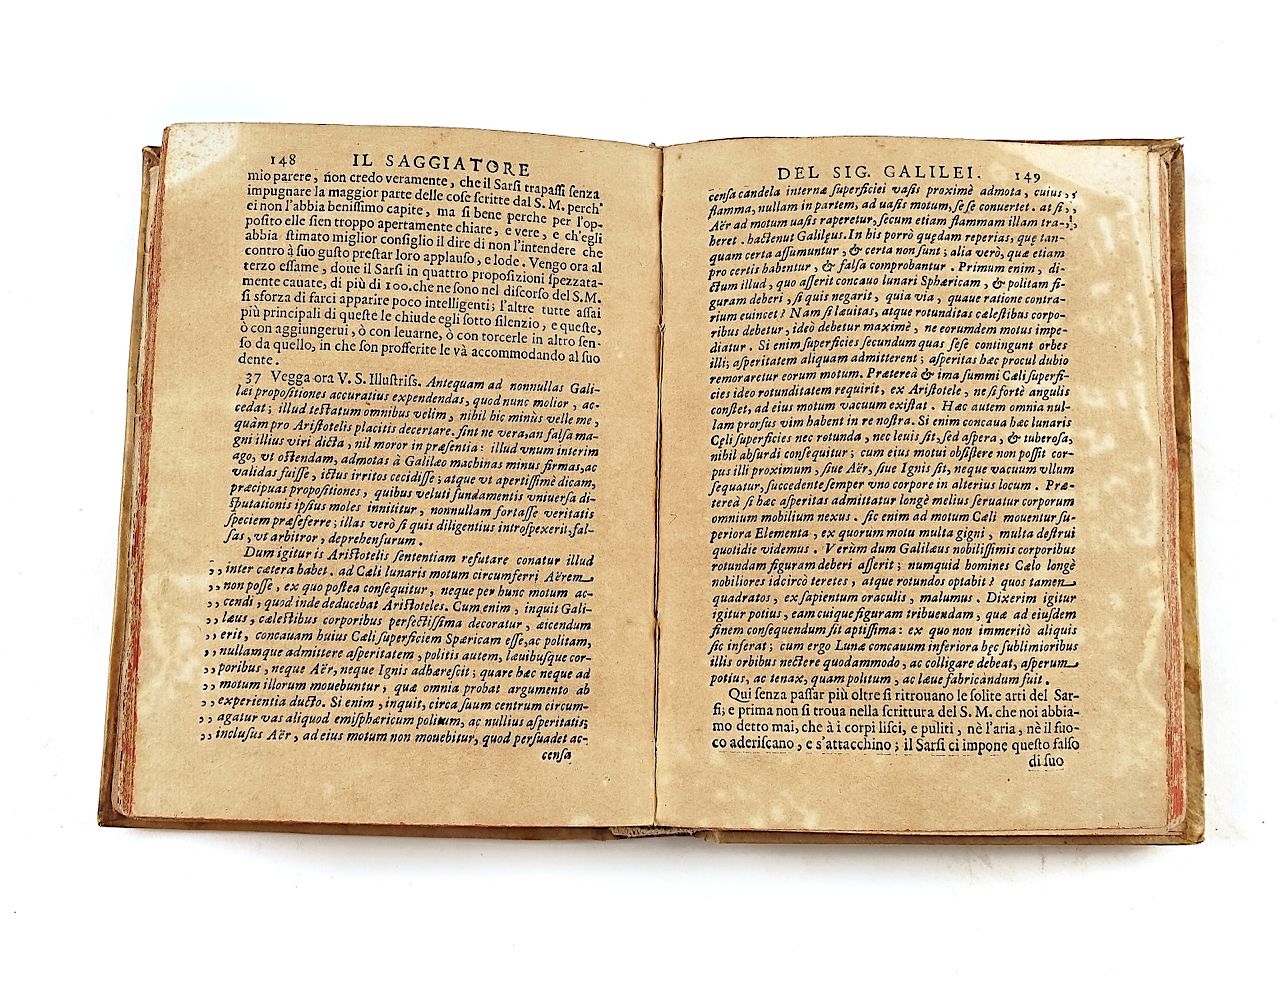 148 IL SAGGIATORE
mio parere, non credo veramente, che il Sarsi trapassi senza
impugnare la maggior parte delle cose scritte dal S. M. perch'
ei non l'abbia benissimo capite, ma si bene perche per l'op-
posito elle sien troppo apertamente chiare, e vere, e ch'egli
abbia stimato miglior consiglio il dire di non l'intendere che
contro à suo gusto prestar loro applauso, e lode. Vengo ora al
terzo essame, doue il Sarsi in quattro proposizioni spezzata-
mente cauate, di più di 100. che ne sono nel discorso del S. M.
si sforza di farci apparire poco intelligenti; l'altre tutte assai
più principali di queste le chiude egli sotto silenzio, e queste,
ò con aggiungerui, ò con leuarne, ò con torcerle in altro sen-
so da quello, in che son profferite le và accommodando al suo
dente.
37 Vegga ora V. S. Illustriss. Antequam ad nonnullas Gali-
læi propositiones accuratius expendendas, quod nunc molior, ac-
cedat; illud testatum omnibus velim, nihil hic minùs velle me,
quàm pro Aristotelis placitis decertare. sint ne vera, an falsa ma-
gni illius viri dicta, nil moror in præsentia: illud vnum interim
ago, vt ostendam, admotas à Galilæo machinas minus firmas, ac
validas fuisse, ictus irritos cecidisse; atque vt apertissimè dicam,
præcipuas propositiones, quibus veluti fundamentis vniuersa di-
sputationis ipsius moles innititur, nonnullam fortasse veritatis
speciem præseferre; illas verò si quis diligentius introspexerit, fal-
sas, vt arbitror, deprehensurum.
Dum igitur is Aristotelis sententiam refutare conatur illud
,, inter cætera habet. ad Cæli lunaris motum circumferri Aërem
,, non posse, ex quo postea consequitur, neque per hunc motum ac-
,, cendi, quod inde deducebat Aristoteles. Cum enim, inquit Gali-
,, læus, cælestibus corporibus perfectissima decoratur, æicendum
,, erit, concauam huius Cæli superficiem Spæricam esse, ac politam,
,, nullamque admittere asperitatem, politis autem, læuibusque cor-
,, poribus, neque Aër, neque Ignis adhærescit; quare hæc neque ad
,, motum illorum mouebuntur, quæ omnia probat argumento ab
,, experientia ducto. Si enim, inquit, circa suum centrum circum-
,, agatur vas aliquod emisphæricum politum, ac nullius asperitatis;
,, inclusus Aër, ad eius motum non mouebitur, quod persuadet ac-
censa
DEL SIG. GALILEI. 149
censa candela internæ superficiei vasis proximè admota, cuius ,,
flamma, nullam in partem, ad uasis motum, se se conuertet. at si ,,
Aër ad motum uasis raperetur, secum etiam flammam illam tra- ,,
heret. hactenus Galilęus. In his porrò quędam reperias, quę tan-
quam certa assumuntur, & certa non sunt; alia verò, quæ etiam
pro certis habentur, & falsa comprobantur. Primum enim, di-
ctum illud, quo asserit concauo lunari Sphæricam, & politam fi-
guram deberi, si quis negarit, quia via, quaue ratione contra-
rium euincet? Nam si læuitas, atque rotunditas cælestibus corpo-
ribus debetur, ideò debetur maximè, ne eorumdem motus impe-
diatur. Si enim superficies secundum quas sese contingunt orbes
illi; asperitatem aliquam admitterent; asperitas hæc procul dubio
remoraretur eorum motum. Prætereà & ima summi Cæli superfi-
cies ideo rotunditatem requirit, ex Aristotele, ne si fortè angulis
constet, ad eius motum vacuum existat. Hæc autem omnia nul-
lam prorsus vim habent in re nostra. Si enim concaua hæc lunaris
Cęli superficies nec rotunda, nec leuis sit, sed aspera, & tuberosa,
nihil absurdi consequitur; cum eius motui obsistere non possit cor-
pus illi proximum, siue Aër, siue Ignis sit, neque vacuum vllum
sequatur, succedente semper vno corpore in alterius locum. Præ-
tereà si hæc asperitas admittatur longè melius seruatur corporum
omnium mobilium nexus. sic enim ad motum Cæli mouentur su-
periora Elementa, ex quorum motu multa gigni, multa destrui
quotidie videmus. Verùm dum Galilæus nobilissimis corporibus
rotundam figuram deberi asserit; numquid homines Cælo longè
nobiliores idcircò teretes, atque rotundos optabit? quos tamen
quadratos, ex sapientum oraculis, malumus. Dixerim igitur
igitur potius, eam cuique figuram tribuendam, quæ ad eiusdem
finem consequendum sit aptissima: ex quo non immeritò aliquis
sic inferat; cum ergo Lunæ concauum inferiora hęc sublimioribus
illis orbibus nectere quodammodo, ac colligare debeat, asperum
potius, ac tenax, quam politum, ac læue fabricandum fuit.
Qui senza passar più oltre si ritrouano le solite arti del Sar-
si; e prima non si troua nella scrittura del S. M. che noi abbia-
mo detto mai, che à i corpi lisci, e puliti, nè l'aria, nè il fuo-
co aderiscano, e s'attacchino; il Sarsi ci impone questo falso
di suo